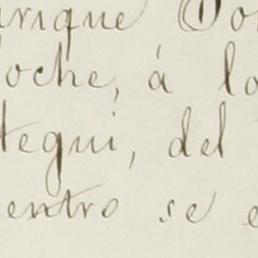 rique Do
oche, á lo
tegui, del
entro se e